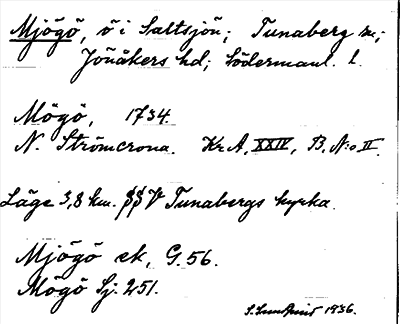 Mjögö, ö i Saltsjön; Tunaberg sn;
Jönåkers hd; Södermanl. l.
Mögö, 1734.
N. Strömcrona. Kr A, XXIV, B, N:o II.
Läge 3,8 km. SSV Tunabergs kyrka.
Mjögö ek, G. 56.
Mögö Sj. 251.
S. Sundquist 1936.